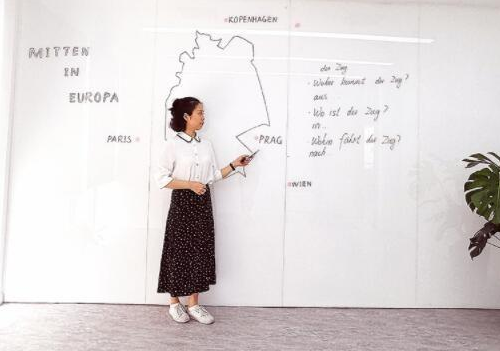 MITTEN
IN
EUROPA
KOPENHAGEN
PARIS
PRAG
WIEN
der Zug
- Woher kommt der Zug?
aus
- Wo ist der Zug?
in...
- Wohin fährt der Zug?
nach...